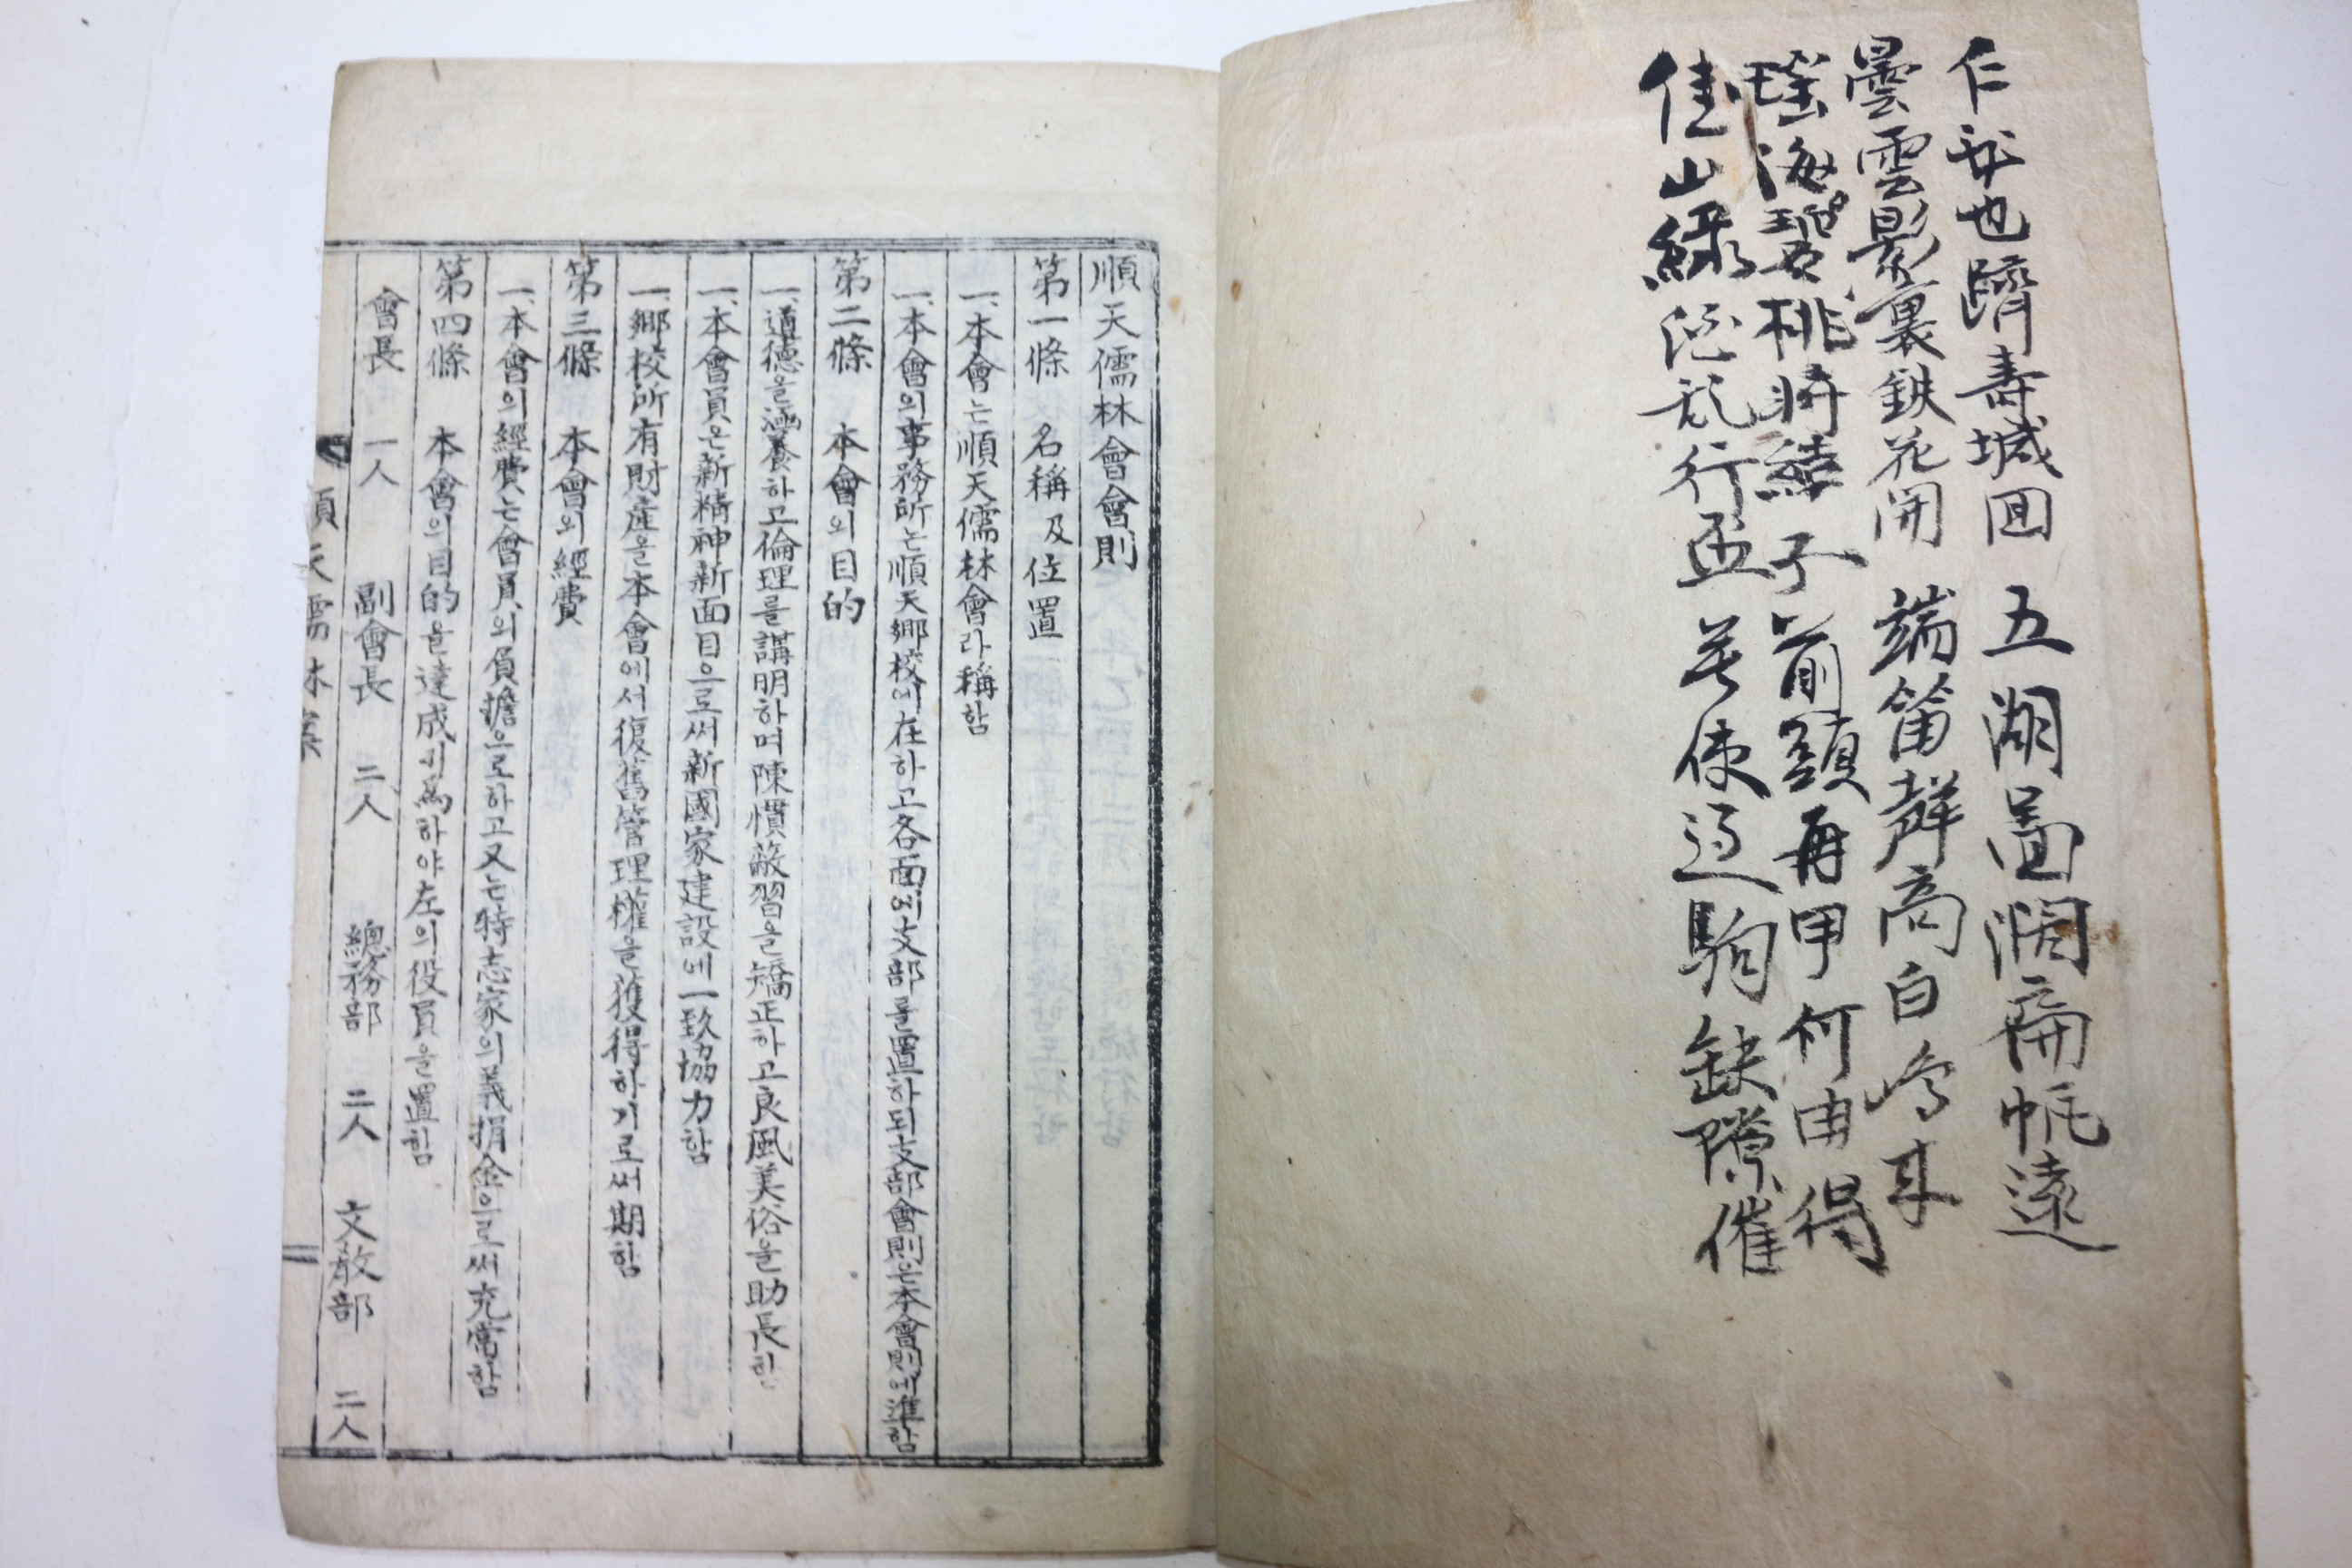 仁於也躋壽域回 五湖啚濶扁帆遠
曇雲影裏鉄花開 端笛聲高白鳥耳
瑤海碧桃將結子 前頭再甲何由得
佳山綠 行盃 莫使過駒缺隙催
順天儒林會會則
第一條 名稱及位置
一、本會는順天儒林會라稱함
一、本會의事務所는順天鄕校에在하고各面에支部를置하되支部會則은本會則에準함
第二條 本會의目的
一、道德을涵養하고倫理를講明하며陳慣蔽習을矯正하고良風美俗을助長함
一、本會員은新精神新面目으로써新國家建設에一致協力함
一、鄕校所有財產을本會에서復舊管理權을獲得하기로써期함
第三條 本會의經費
一、本會의經費는會員의負擔으로하고又는特志家의義捐金으로써充當함
第四條 本會의目的을達成키爲하야左의役員을置함
會長 一人 副會長 二人 總務部 二人 文敎部 二人
順天儒林案